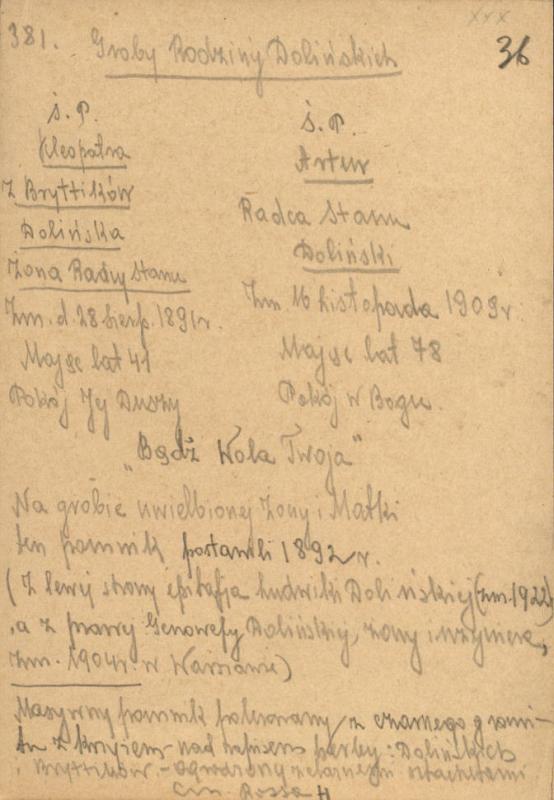 381. Groby Rodziny Dolińskich
xxx
36
ś.P.
Kleopatra
z Bryttików
Dolińska
Żona Radcy Stanu
Zm. d. 28 Sierp. 1891r.
Mając lat 41
Pokój Jej Duszy
ś.P.
Artur
Radca Stanu
Doliński
Zm. 16 Listopada 1909r
Mając lat 78
Pokój w Bogu.
„Bądź Wola Twoja"
Na grobie uwielbionej Żony i Matki
ten pomnik postawili 1892 r.
(Z lewej strony epitafja Ludwiki Dolińskiej (zm. 1922)
, a z prawej Genowefy Dolińskiej, żony inżyniera,
zm. 1904r. w Warszawie)
Masywny pomnik polerowany z czarnego grani-
tu z krzyżem nad napisem herby: Dolińskich
i Bryttików. - ogrodzony żelaznym sztachetami
Cm. Rossa